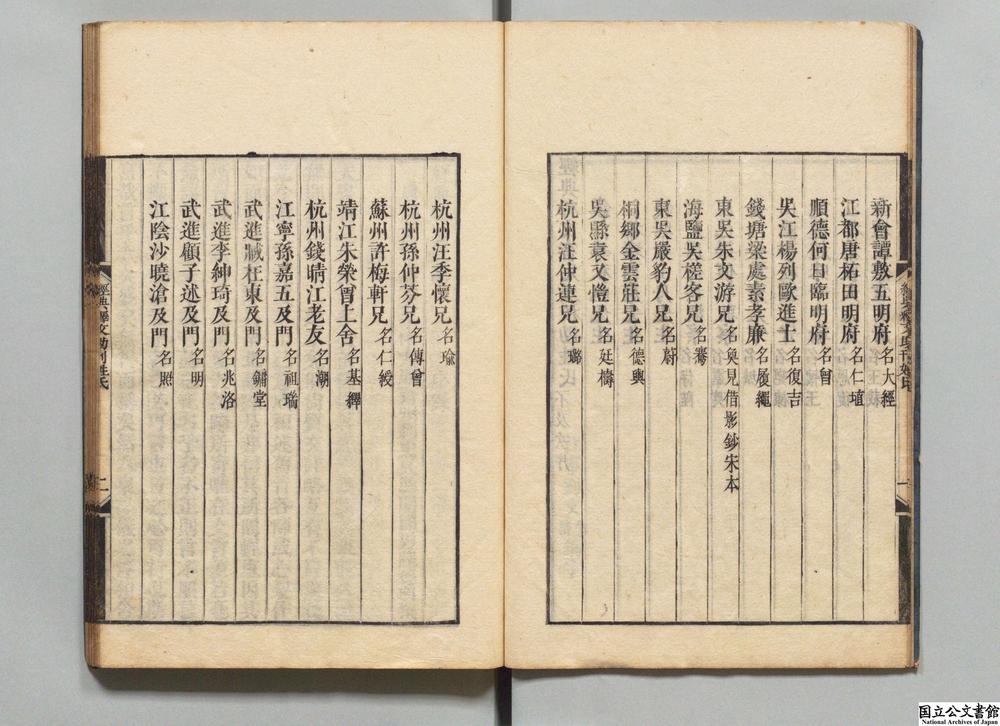 新會譚敷五明府名大經
江都唐柘田明府名仁埴
順德何日臨明府名曾
吳江楊列歐進士名復吉
錢塘梁處素孝廉名履繩
東吳朱文游兄名奐見借影鈔宋本
海鹽吳槎客兄名騫
東吳嚴豹人兄名蔚
桐鄉金雲莊兄名德輿
吳縣袁又愷兄名廷檮
杭州汪仲連兄名璐
經典釋文助刊姓氏
一
杭州汪季懷兄名瑜
杭州孫仲芬兄名傳曾
蘇州許梅軒兄名仁綬
靖江朱榮曾上舍名基
杭州錢晴江老友名潮
江寧孫嘉五及門名祖瑞
武進臧在東及門名鏞堂
武進李紳琦及門名兆洛
武進顧子述及門名明
江陰沙曉滄及門名照
經典釋文助刊姓氏
二
国立公文書館
National Archives of Japan